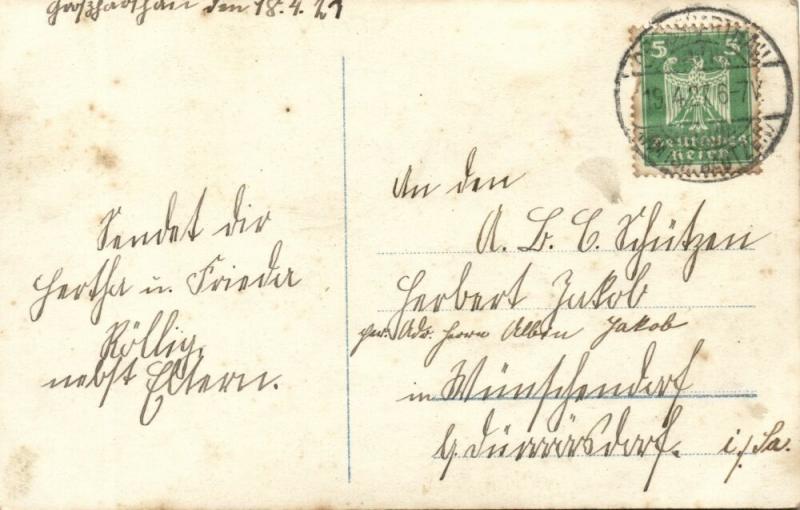 Großharthau den 18.4.27
5 5
19.4.27.6-7V.
Deutsches
Reich
Sendet dir
Hertha u. Frieda
Röllig,
nebst Eltern.
An den
A. B. C. Schützen
Herbert Jakob
per. Ads. Herrn Albin Jakob
in Wünschendorf
b/ Dürrröhrsdorf. i/ Sa.